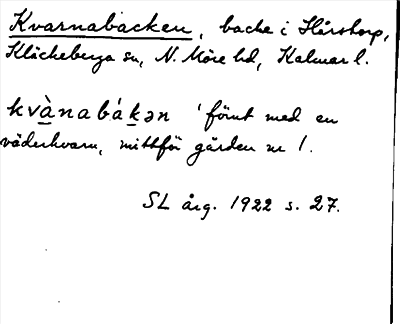 Kvarnabacken, backe i Hårstorp,
Kläckeberga sn, N. Möre hd, Kalmar l.
kvànabákən 'förut med en
väderkvarn, mittför gården nr 1.
SL årg. 1922 s. 27.